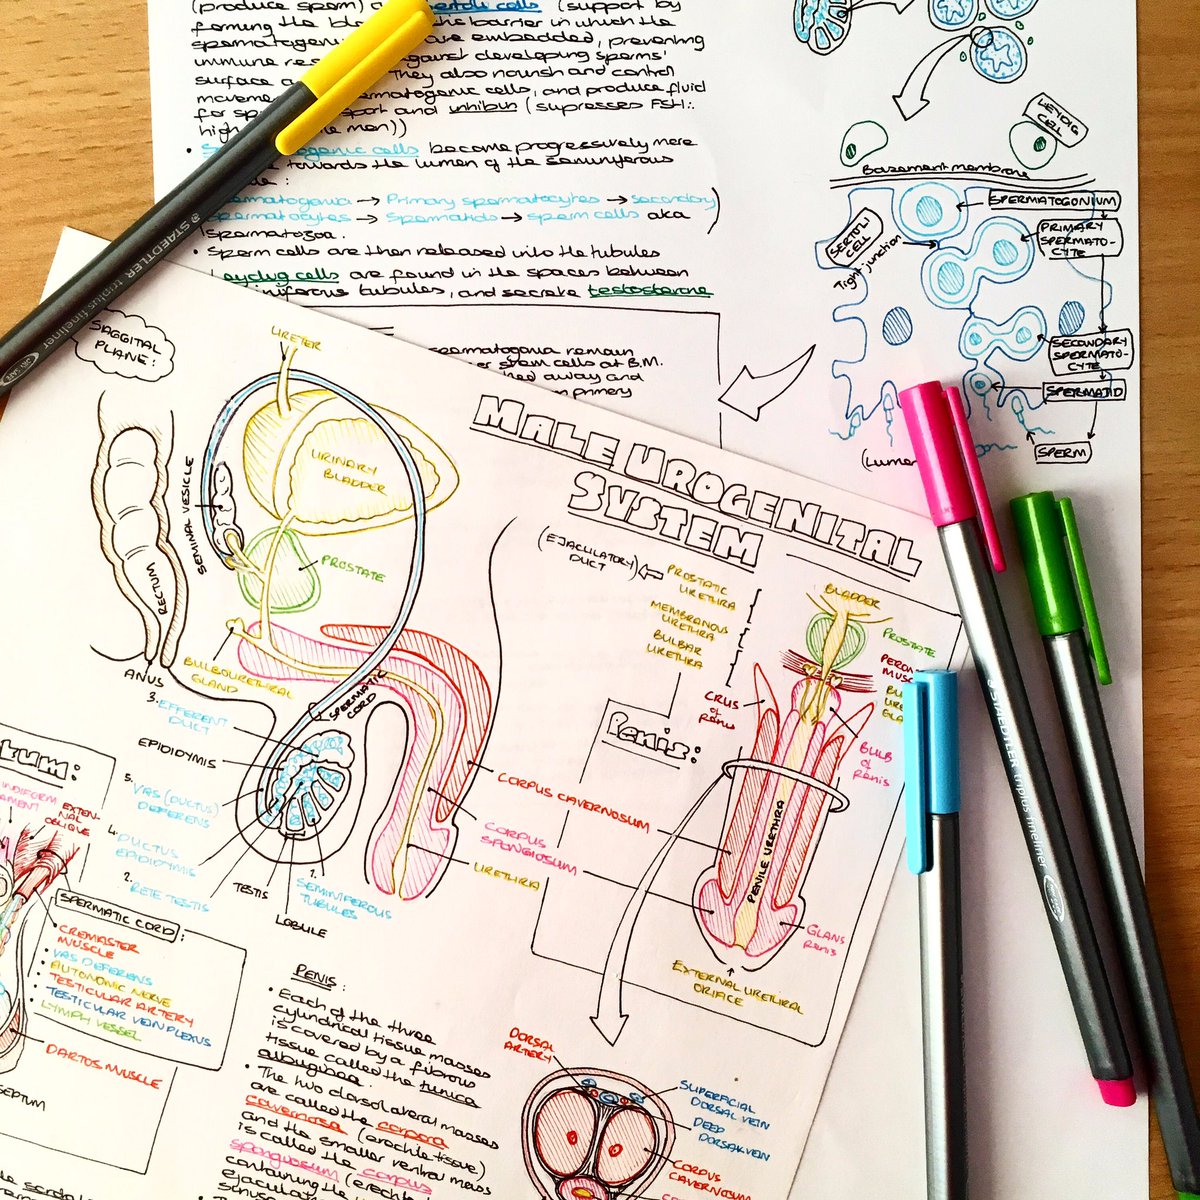 (produce sperm) a Sertoli cells (support by
forming the blo the barrier in which the
spermatogeni are embedded, preventing
immune res against developing sperms'
surface a They also nourish and control
movem matogenic cells, and produce fluid
for sp port and inhibin (supresses FSH ∴
high men))
• S genic cells become progressively more
towards the lumen of the seminiferous
:
matogonia → Primary spermatocytes → secondary
spermatocytes → Spermatids → sperm cells aka
spermatozoa.
• Sperm cells are then released into the tubules
Leydig cells are found in the spaces between
iniferous tubules, and secrete testosterone
spermatogonia remain
er stem cells at B.M.
hed away and
primary
LEYDIG
CELL
Basement membrane
SPERMATOGONIUM
SERTOLI
CELL
Tight junction
PRIMARY
SPERMATO-
CYTE
SECONDARY
SPERMATO-
CYTE
SPERMATID
SPERM
(Lumen
STAEDTLER triplus fineliner
SAGGITAL
PLANE:
MALE UROGENITAL
SYSTEM
URETER
URINARY
BLADDER
SEMINAL VESICLE
PROSTATE
RECTUM
ANUS
BULBOURETHRAL
GLAND
SPERMATIC
CORD
3. EFFERENT
DUCT
EPIDIDYMIS
5. VAS (DUCTUS)
DEFERENS
4. DUCTUS
EPIDIDYMIS
2. RETE TESTIS
TESTIS
LOBULE
1. SEMINIFEROUS
TUBULES
CORPUS CAVERNOSUM
CORPUS
SPONGIOSUM
URETHRA
(EJACULATORY
DUCT)
PROSTATIC
URETHRA
MEMBRANOUS
URETHRA
BULBAR
URETHRA
BLADDER
PROSTATE
CRUS
of
Penis
Penis:
BULB
of
Penis
PENILE URETHRA
GLANS
Penis
EXTERNAL URETHRAL
ORIFICE
STAEDTLER triplus fineliner
tum:
NDIFORM
AMENT
EXTER-
NAL
OBLIQUE
SPERMATIC CORD:
• CREMASTER
MUSCLE
• VAS DEFERENS
• AUTONONIC NERVE
• TESTICULAR ARTERY
• TESTICULAR VEIN PLEXUS
• LYMPH VESSEL
DARTOS MUSCLE
SEPTUM
PENIS:
• Each of the three
cylindrical tissue masses
is covered by a fibrous
tissue called the tunica
albuginea.
• The two dorsolateral masses
are called the corpora
cavernosa (erectile tissue)
and the smaller ventral mass
is called the corpus
spongiosum (erectile
containing the
ejaculat
DORSAL
ARTERY
SUPERFICIAL
DORSAL VEIN
DEEP
DORSAL VEIN
CORPUS
CAVERNOSUM